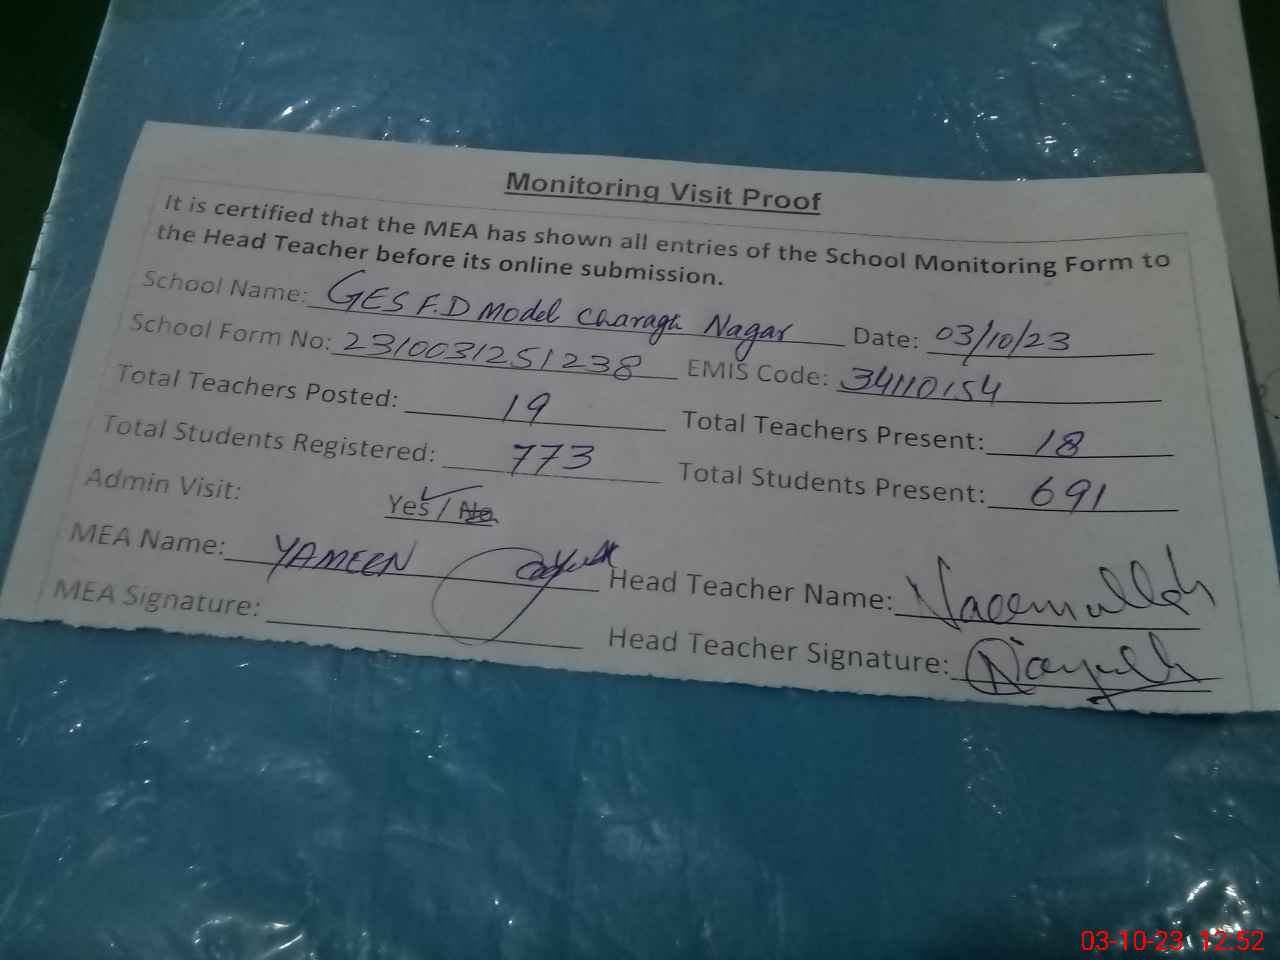 Monitoring Visit Proof
It is certified that the MEA has shown all entries of the School Monitoring Form to
the Head Teacher before its online submission.
School Name: GES F.D Model Charagh Nagar Date: 03/10/23
School Form No: 2310031251238 EMIS Code: 34110154
Total Teachers Posted: 19 Total Teachers Present: 18
Total Students Registered: 773 Total Students Present: 691
Admin Visit: Yes / No
MEA Name: YAMEEN Head Teacher Name: Naeemullah
MEA Signature: Head Teacher Signature:
03-10-23 12:52